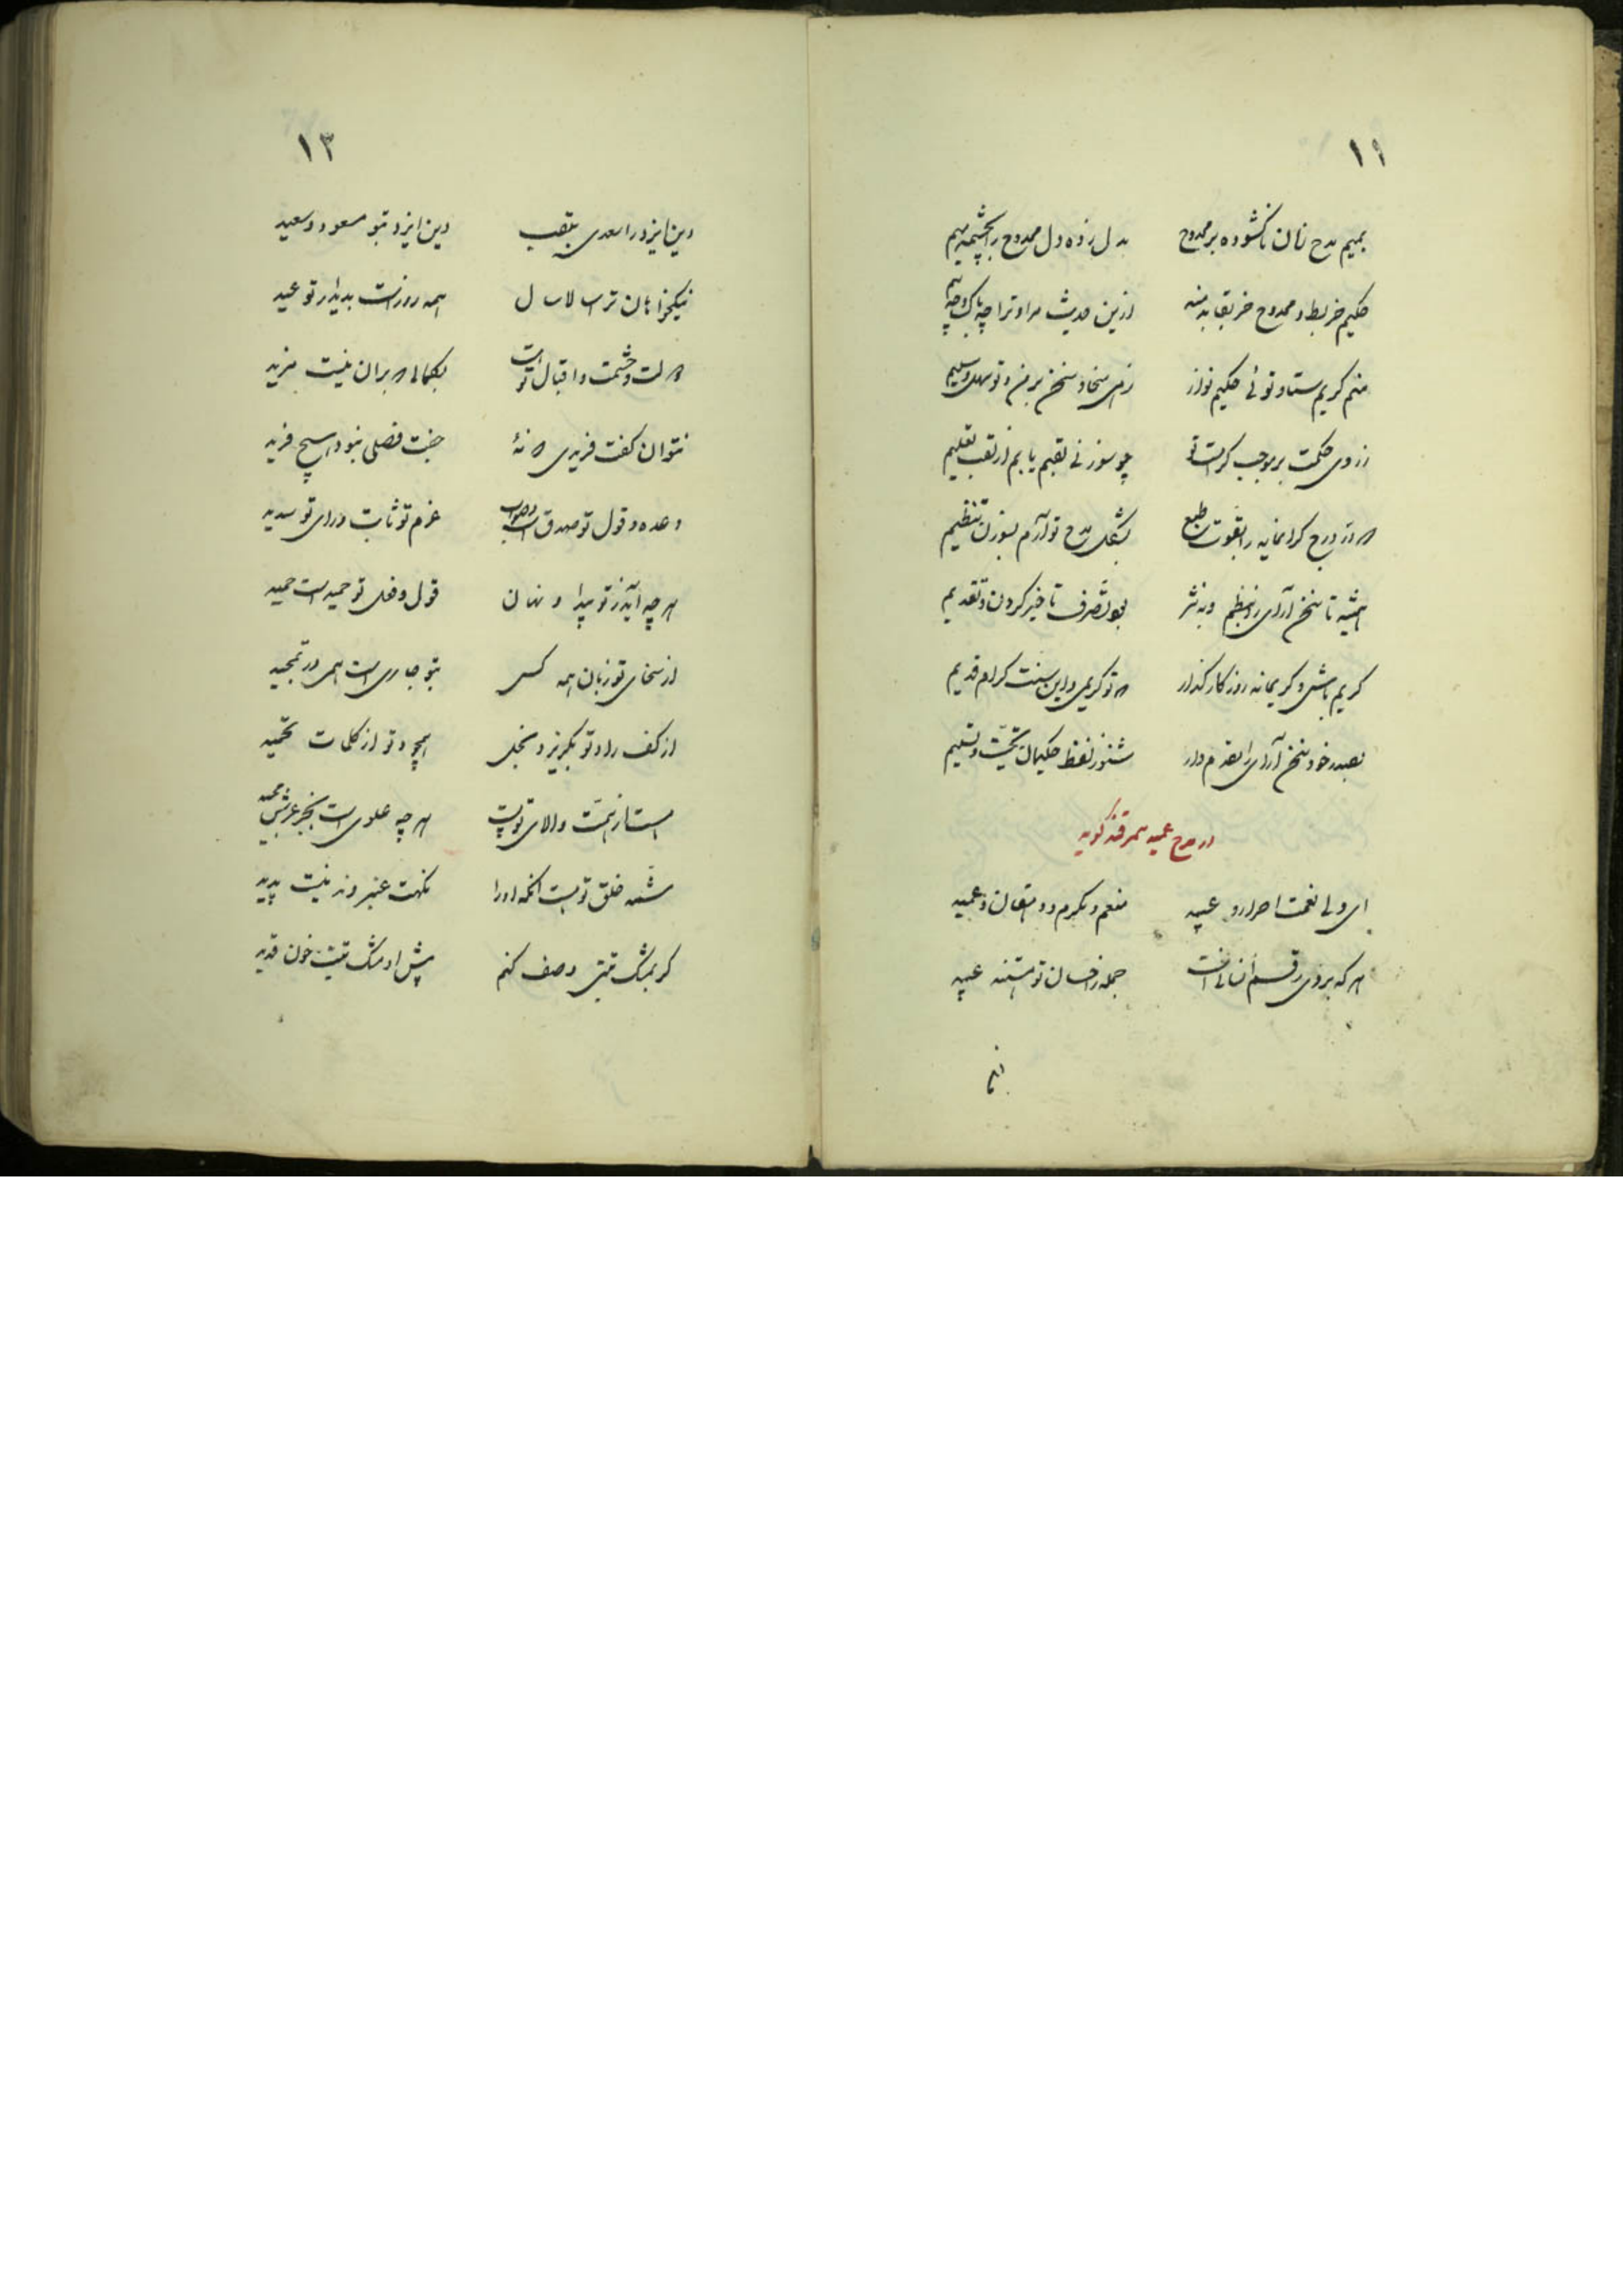 ۱۹
بمیم مدح زنان ناکشوده بر ممدوح بدل زده دل ممدوح را بچشمه میم
حکیم خربط و ممدوح خر بقا بدمنه ازین حدیث مرا و ترا چه باک و چه بیم
منم کریم ستا و توئی حکیم نواز زمی سخا و سخن بر من و تو سهل و سلیم
ز روی حکمت بر موجب کرامت تو چو سوزنی لقبم یا بم از لقب تعلیم
که در درج کرانمایه را بقوت طبع بشکل مدح تو آرم بوزن تنظیم
همیشه تا سخن آرای را بنظم و به نثر بود تصرف تاخیر کردن و تقدیم
کریم باش و کریمانه روزکار کذار که تو کریمی و این سنت کرام قدیم
بصدر خود سخن آرای را مقدم دار شنو ز لفظ حکیمان تحیت و تسلیم
در مدح عمید سمرقند کوید
ای ولی نعمت احرار و عبید منعم و مکرم و دهقان و عمید
هر که بروی رقم انسانی است جمله ز احسان تو هستند عبید
۱۳
دین ایزد را سعدی بلقب دین ایزد بتو مسعود و سعید
نیکخواهان ترا سال اسال همه روز است بدیدار تو عید
دولت و حشمت و اقبال تو است بکمالی که بران نیست مزید
نتوان کفت فریدی که نهٔ جفت فضلی نبود هیچ فرید
وعده و قول تو صدق است و صواب عزم تو ثابت و رای تو سدید
هر چه آید ز تو پیدا و نهان قول و فعل تو حمید است حمید
از سخای تو زبان همه کس بتو جاری است همی در تمجید
از کف راد تو بکریزد بخل همچو دیو از کلمات تحمید
پست از همت والای تو است هر چه علوی است بجز عرش مجید
شمهٔ خلق تو هست انکه او را نکهت عنبر و ند نیست پدید
کر بمشک تبتی وصف کنم پیش او مشک تبت خون قدید